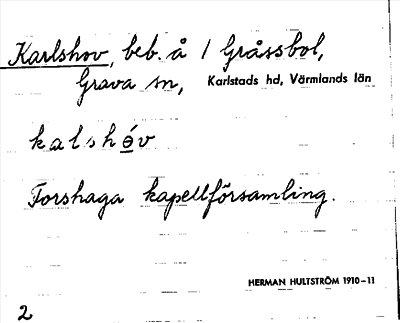 Karlshov, beb. å 1 Gråssbol,
Grava sn, Karlstads hd, Värmlands län
kalshóv
Forshaga kapellförsamling.
HERMAN HULTSTRÖM 1910-11
2